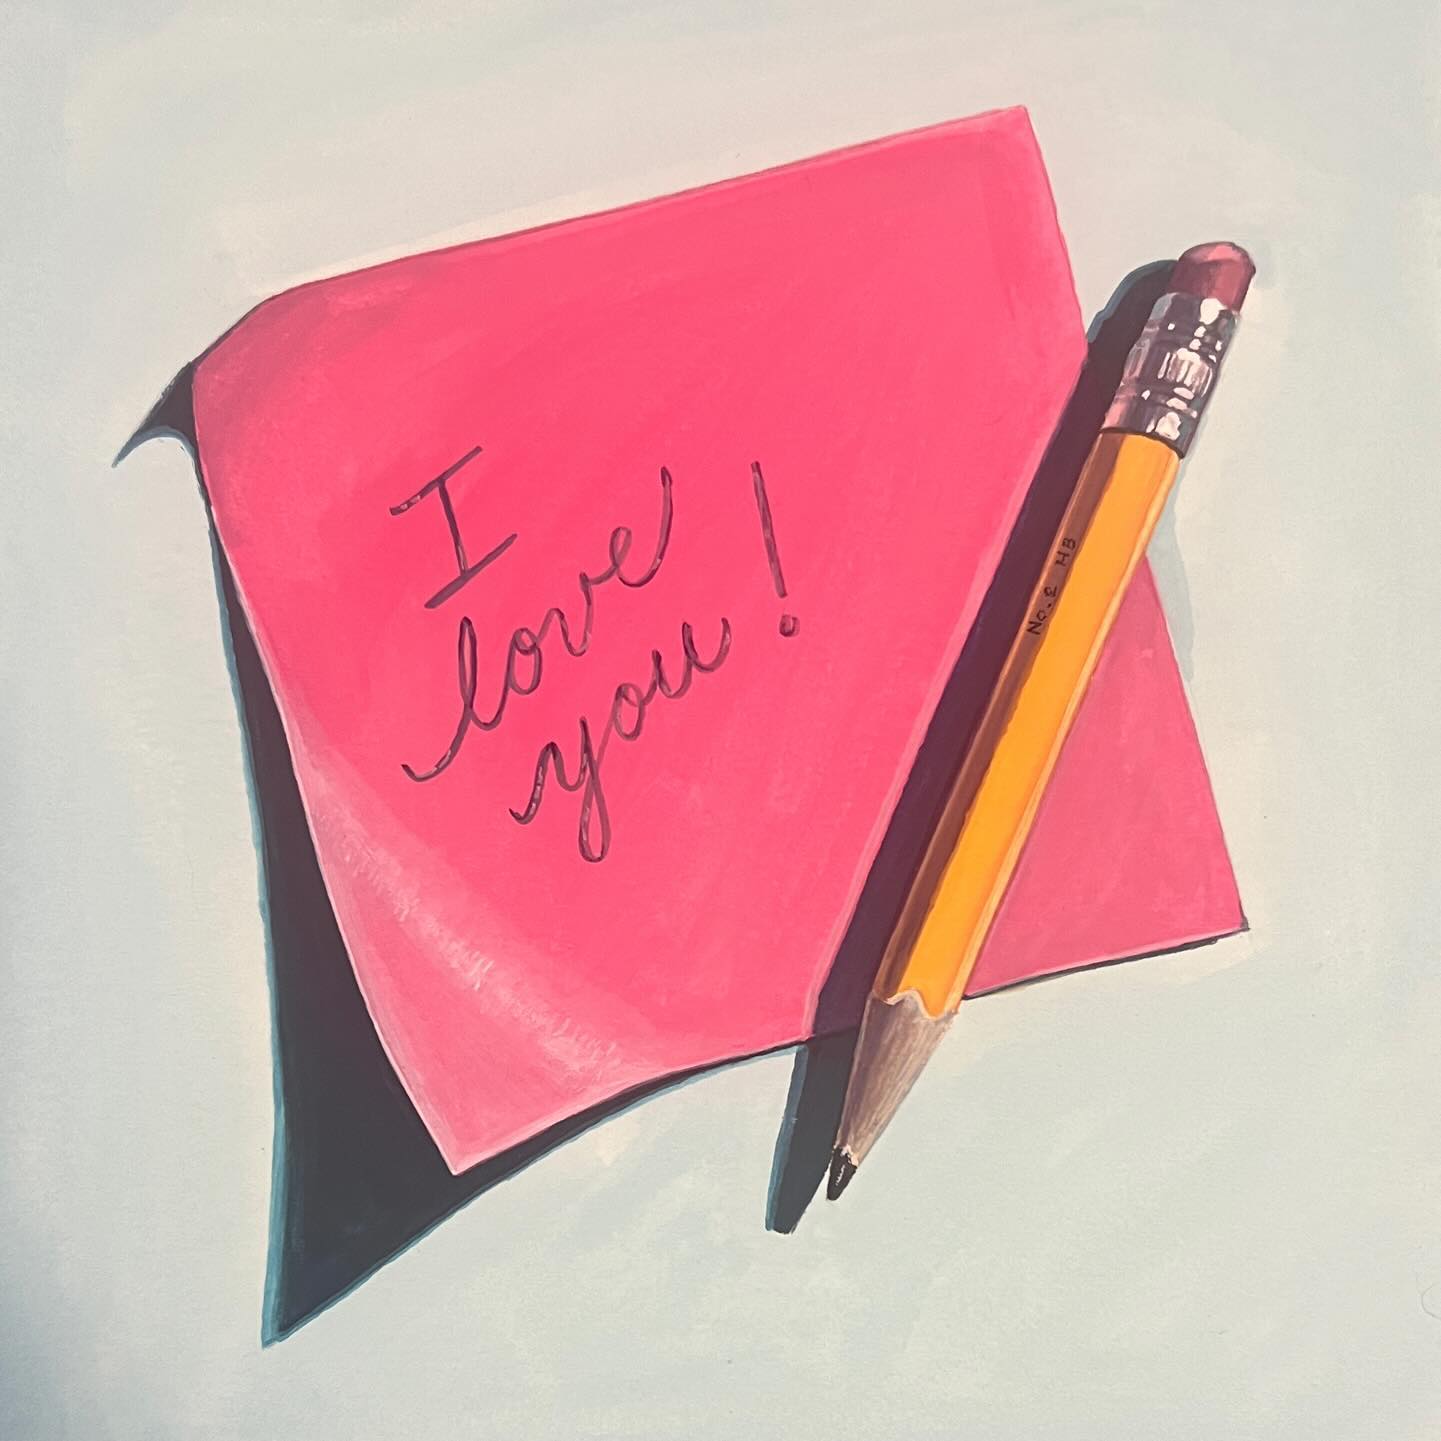 I
love
you!
No. 2 HB